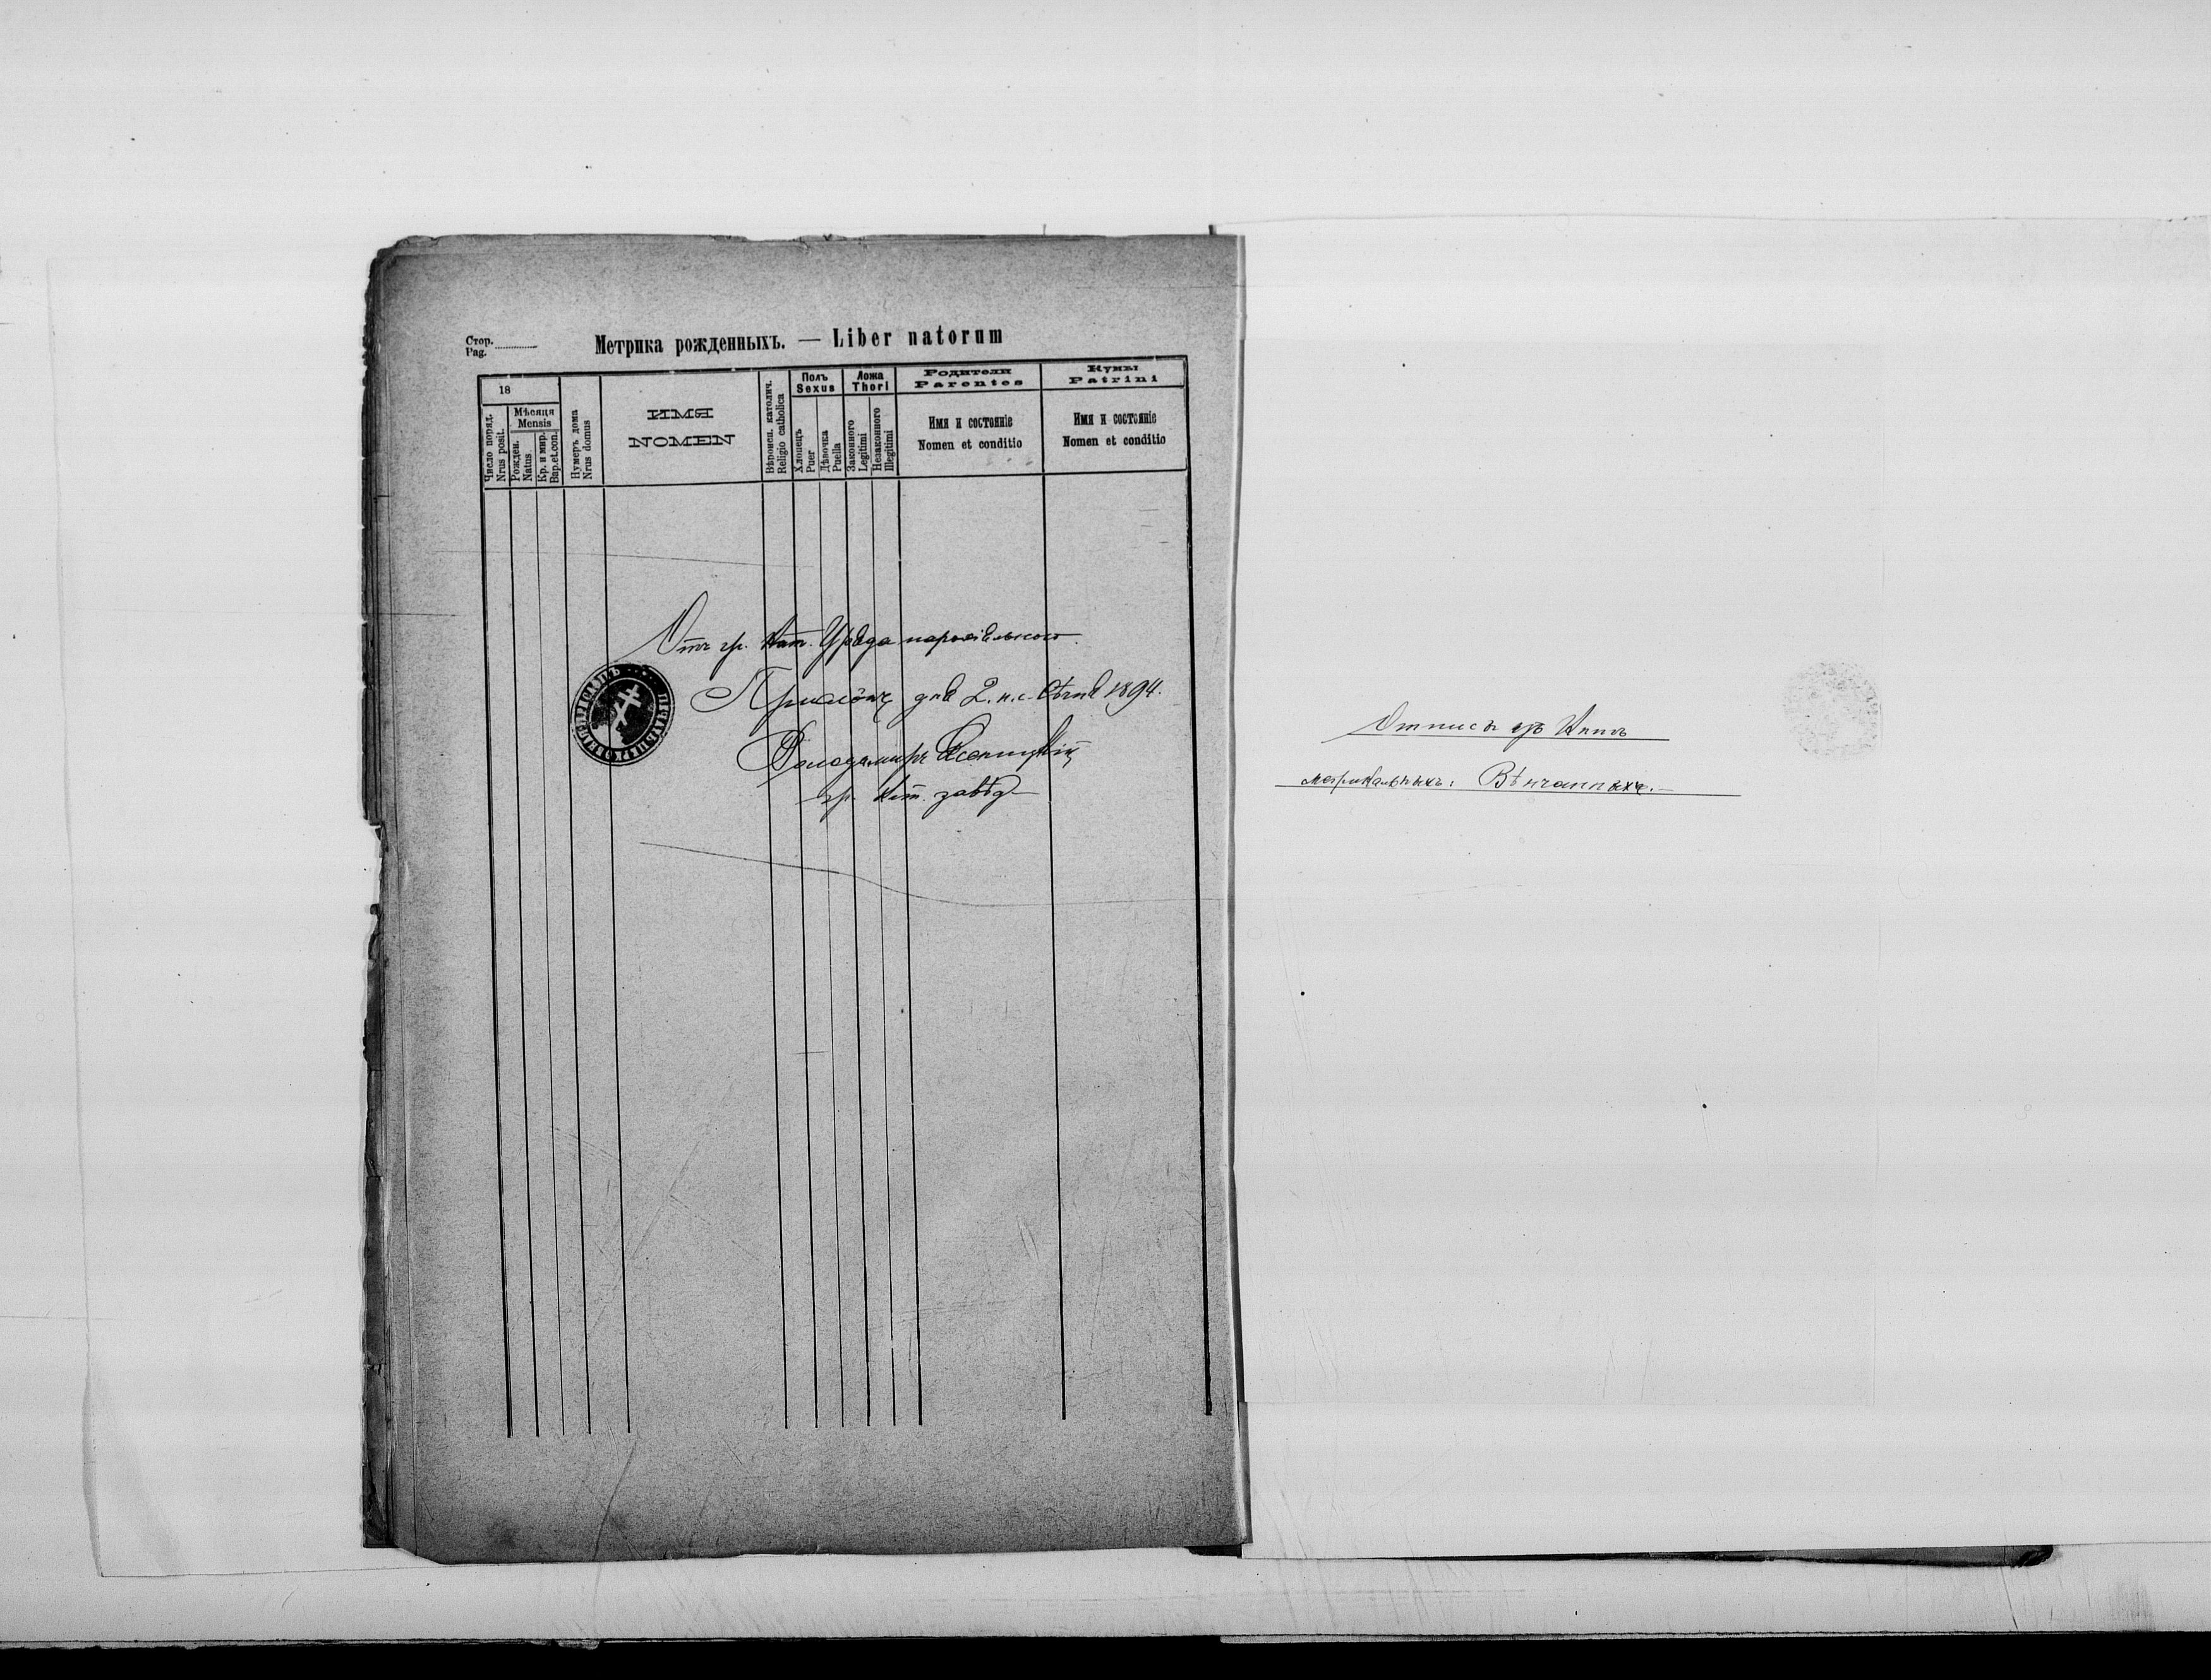 Стор.
Pag.
Метрика рожденныхъ. — Liber natorum
18
Число поряд.
Nrus posit.
Мѣсяця
Mensis
Рожден.
Natus
Кр. и мир.
Bap.et.con.
Нумеръ дома
Nrus domus
ИМЯ
NOMEN
Вѣроисп. католич.
Religio catholica
Полъ
Sexus
Хлопецъ
Puer
Дѣвочка
Puella
Ложа
Thori
Законного
Legitimi
Незаконного
Illegitimi
Родители
Parentes
Имя и состояніе
Nomen et conditio
Кумы
Patrini
Имя и состояніе
Nomen et conditio
Отъ гр. кат. Уряда парохіяльного
дня 2. н. с. 1894.
Володимиръ
гр. кат. завѣд
Отписъ
метрикальныхъ: Вѣнчанныхъ.